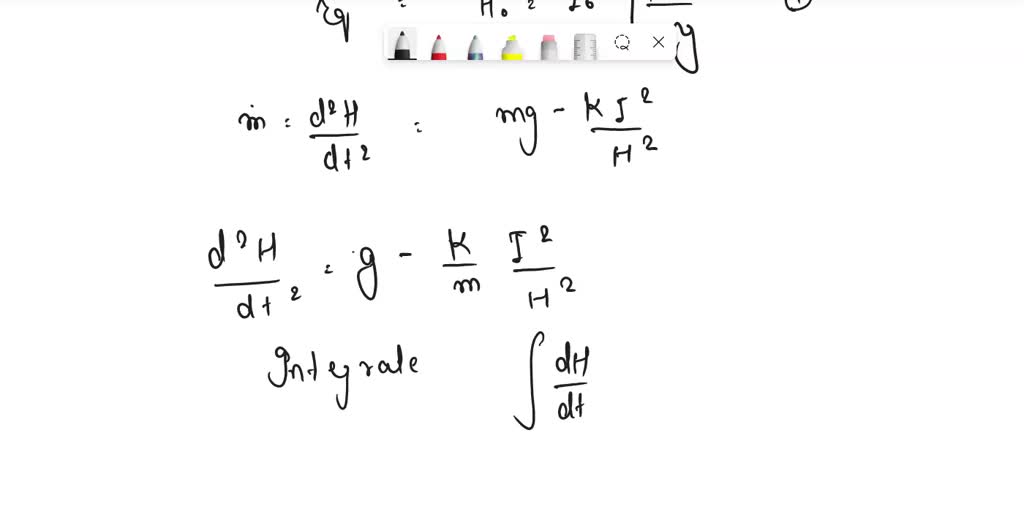 H₀ = I₀
y
ṁ = d²H/dt² = mg - KI²/H²
d²H/dt² = g - K/m I²/H²
Integrate ∫ dH/dt